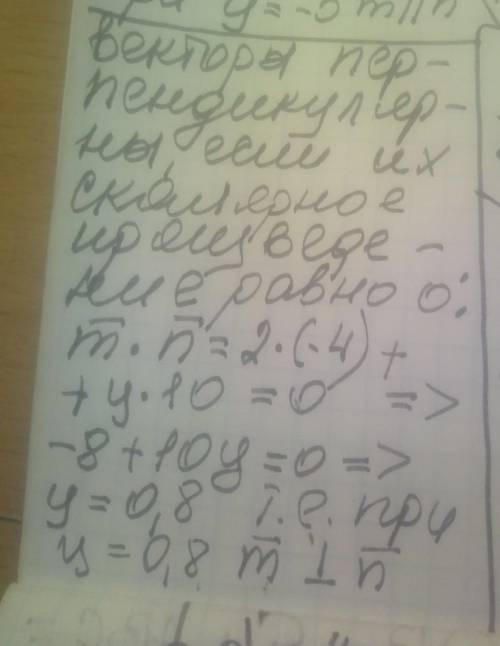 при y = -5 m || n
векторы пер-
пендикуляр-
ны, если их
скалярное
произведе-
ние равно 0:
m̅ · n̅ = 2·(-4) +
+ y·10 = 0 =>
-8 + 10y = 0 =>
y = 0,8 т.е. при
y = 0,8 m̅ ⊥ n̅